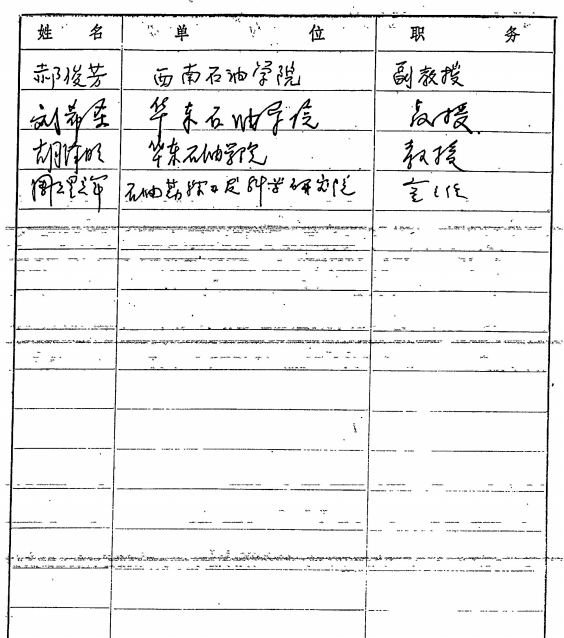 姓名 单位 职务
郝俊芳 西南石油学院 副教授
刘希圣 华东石油学院 教授
胡 华东石油学院 教授
石油勘探开发科学研究院 主任